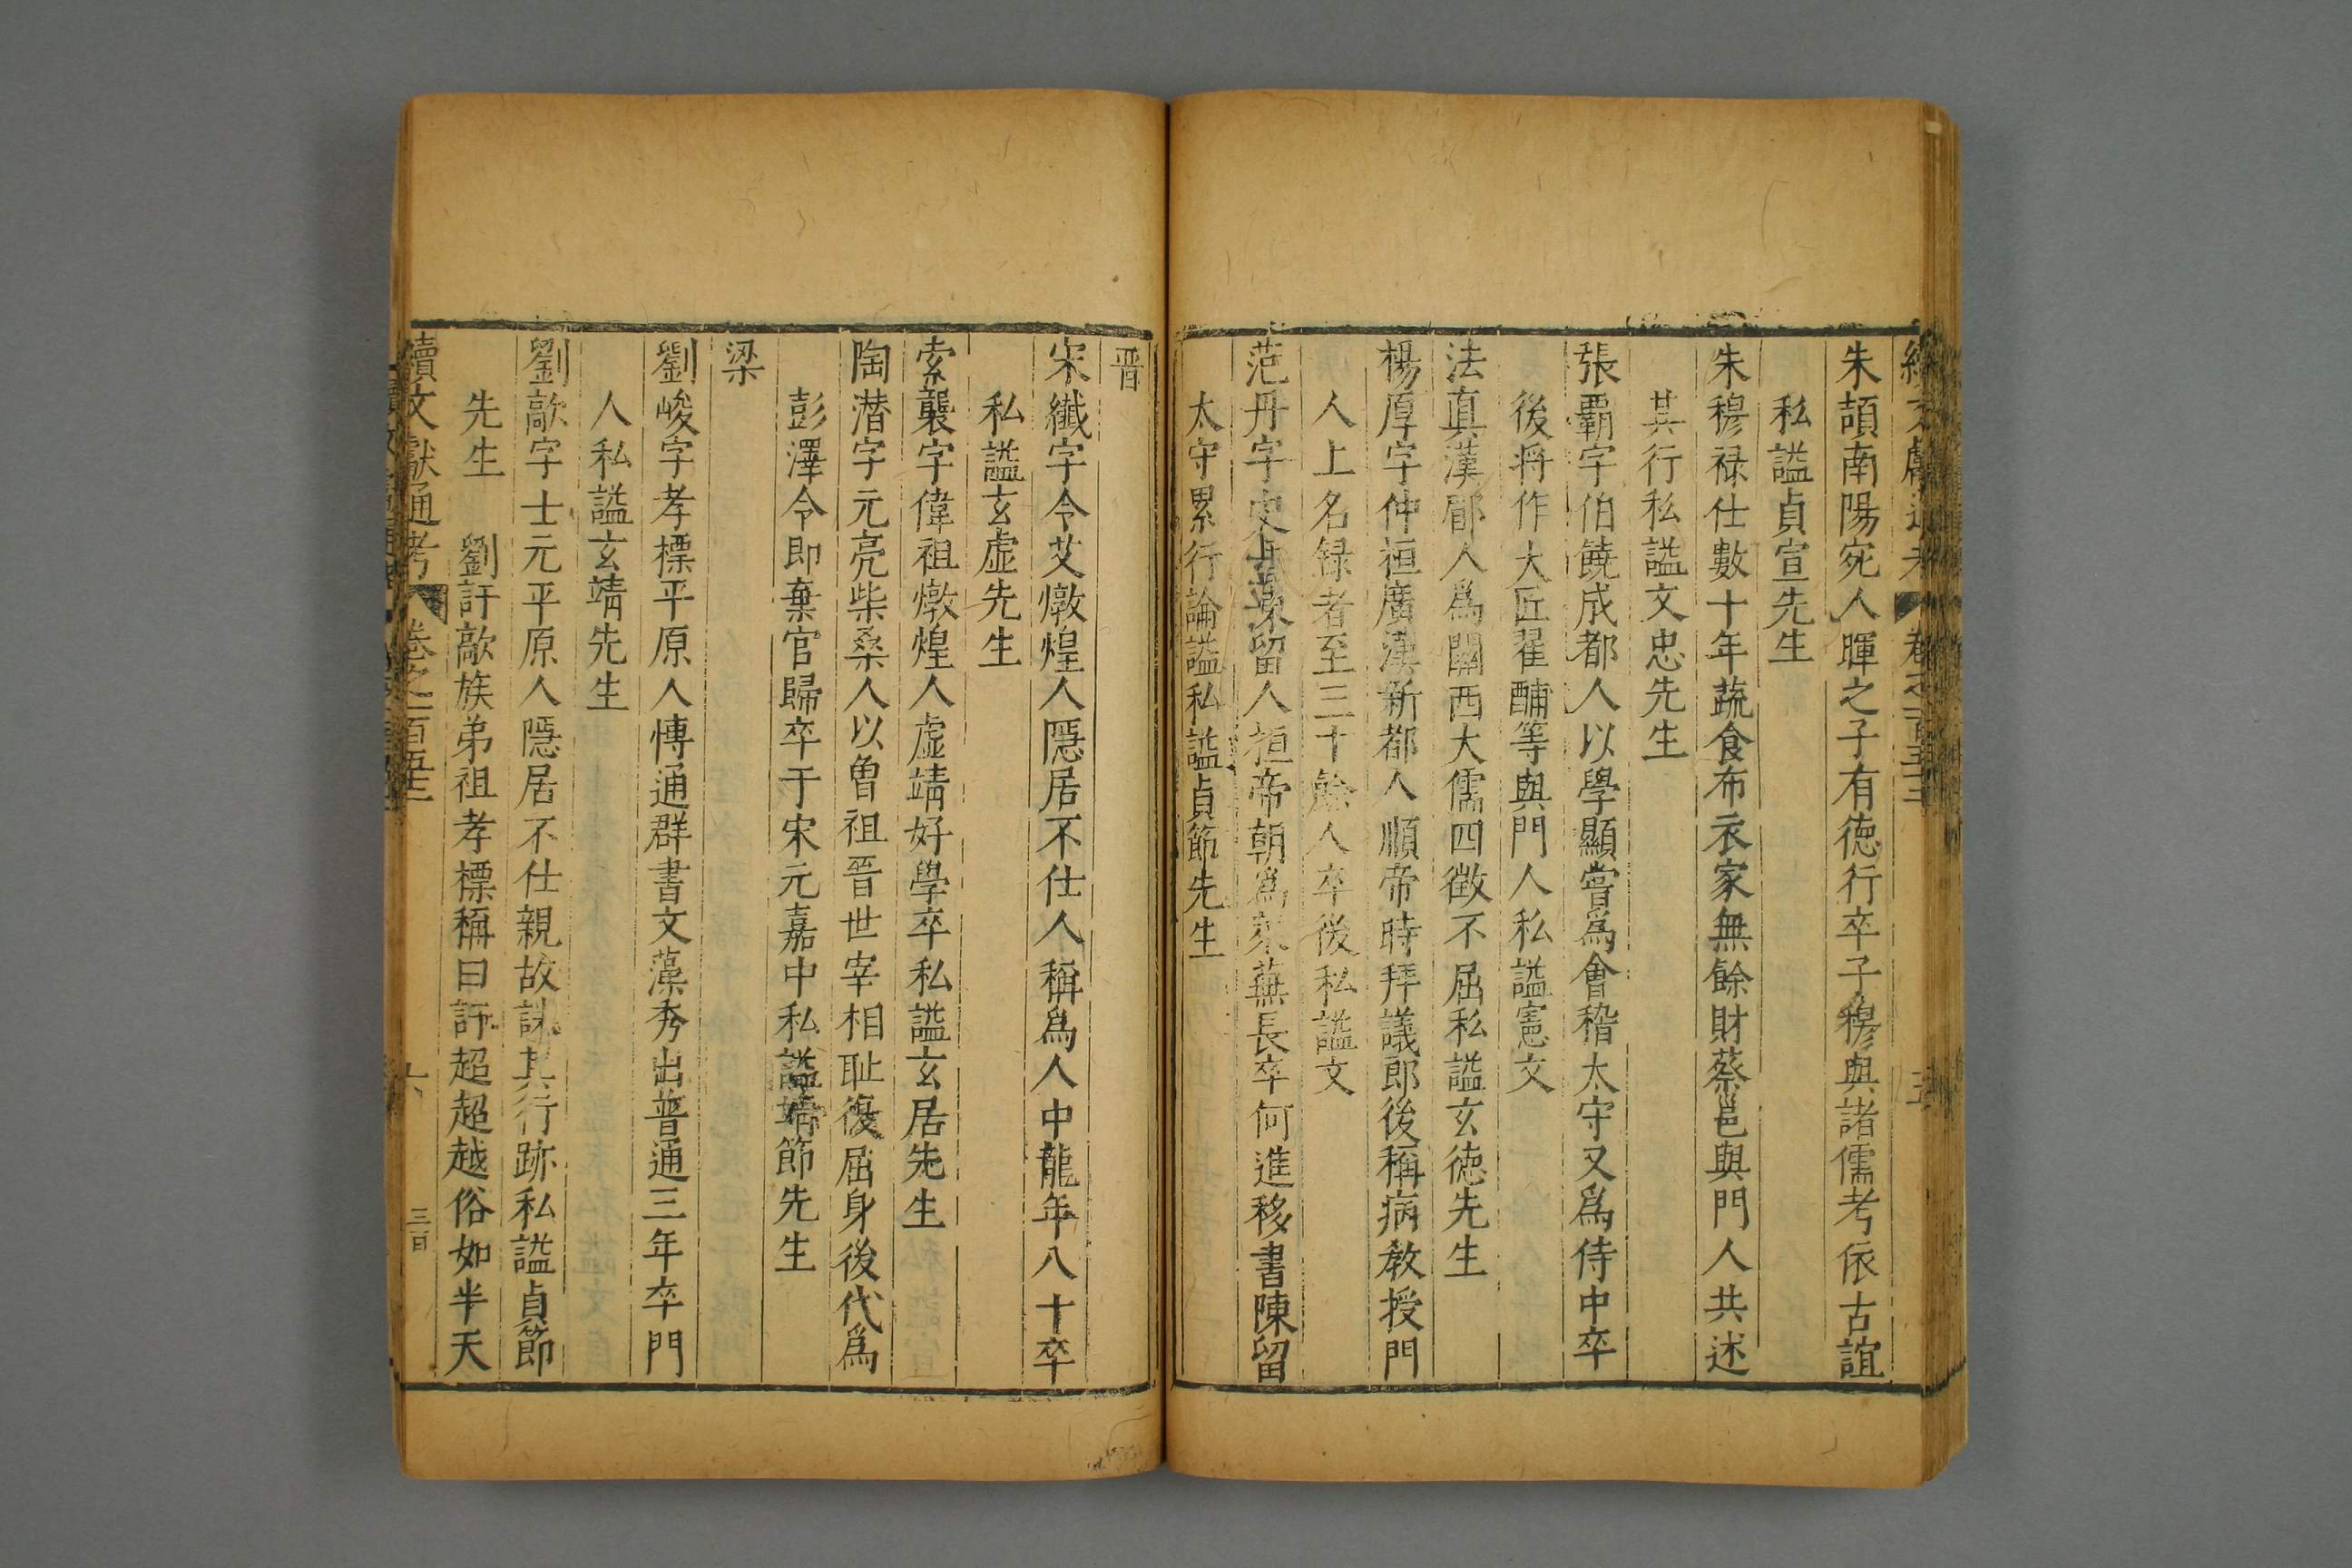 朱頡南陽宛人暉之子有徳行卒子穆與諸儒考依古誼
私謚貞宣先生
朱穆禄仕數十年蔬食布衣家無餘財蔡邕與門人共述
其行私謚文忠先生
張霸字伯饒成都人以學顯嘗爲會稽太守又爲侍中卒
後將作大匠翟酺等與門人私謚憲文
法真漢郿人爲關西大儒四徵不屈私謚玄徳先生
楊厚字仲桓廣漢新都人順帝時拜議郎後稱病教授門
人上名録者至三十餘人卒後私謚文
范丹字史雲陳留人桓帝朝爲萊蕪長卒何進移書陳留
太守累行論謚私謚貞節先生
晉
宋纖字令艾燉煌人隱居不仕人稱爲人中龍年八十卒
私謚玄虛先生
索襲字偉祖燉煌人虛靖好學卒私謚玄居先生
陶潛字元亮柴桑人以曾祖晉世宰相耻復屈身後代爲
彭澤令即棄官歸卒于宋元嘉中私謚靖節先生
梁
劉峻字孝標平原人愽通群書文藻秀出普通三年卒門
人私謚玄靖先生
劉歊字士元平原人隱居不仕親故誄其行跡私謚貞節
先生　劉訏歊族弟祖孝標稱曰訏超超越俗如半天
續文獻通考　卷之一百五十三　十六　三百